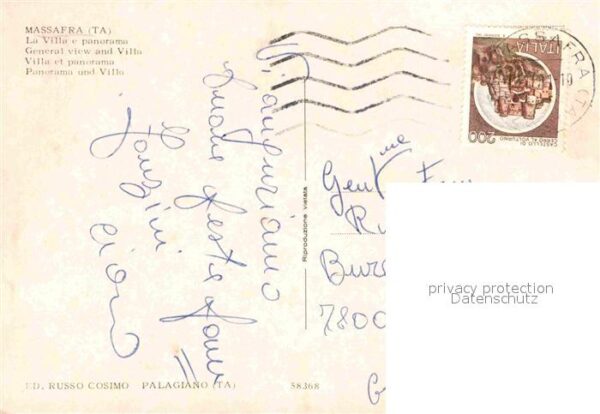 MASSAFRA (TA)
La Villa e panorama
General view and Villa
Villa et panorama
Panorama und Villa
MASSAFRA (TA)
ITALIA
200
CASTELLO DI
CERRO AL VOLTURNO
Vi auguriamo
buone feste
Ciao
Riproduzione vietata
Gent.me
7800
privacy protection
Datenschutz
ED. RUSSO COSIMO PALAGIANO (TA) 58368